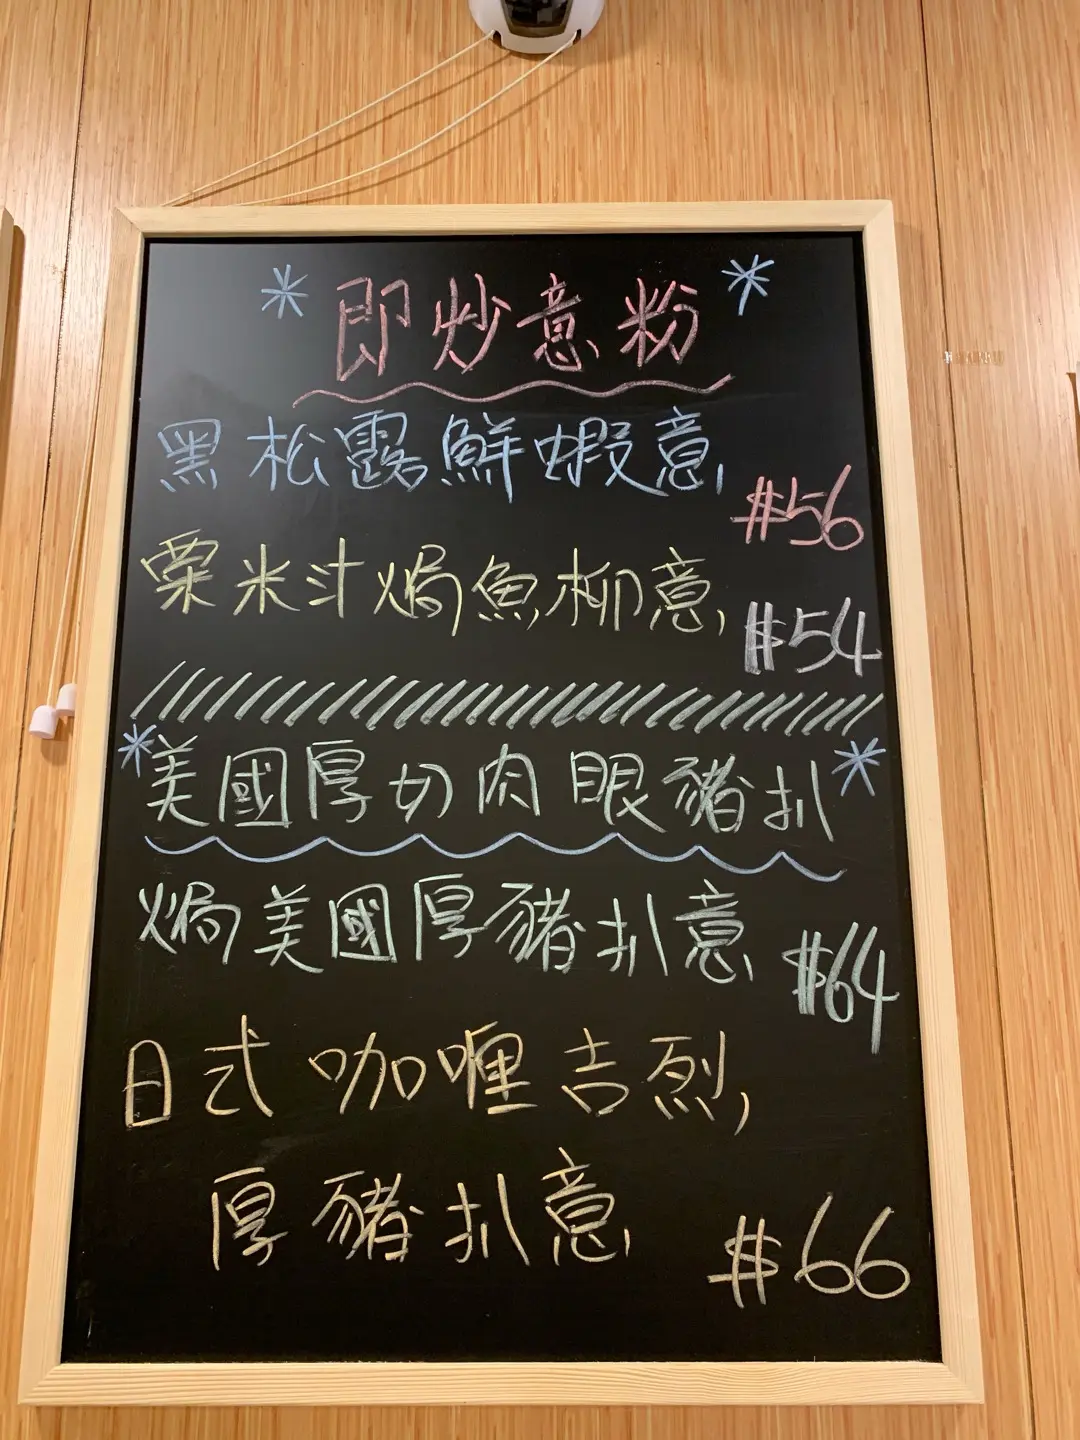 *即炒意粉*
黑松露鮮蝦意
$56
粟米汁焗魚柳意
$54
*美國厚切肉眼豬扒*
焗美國厚豬扒意
$64
日式咖喱吉烈,
厚豬扒意
$66